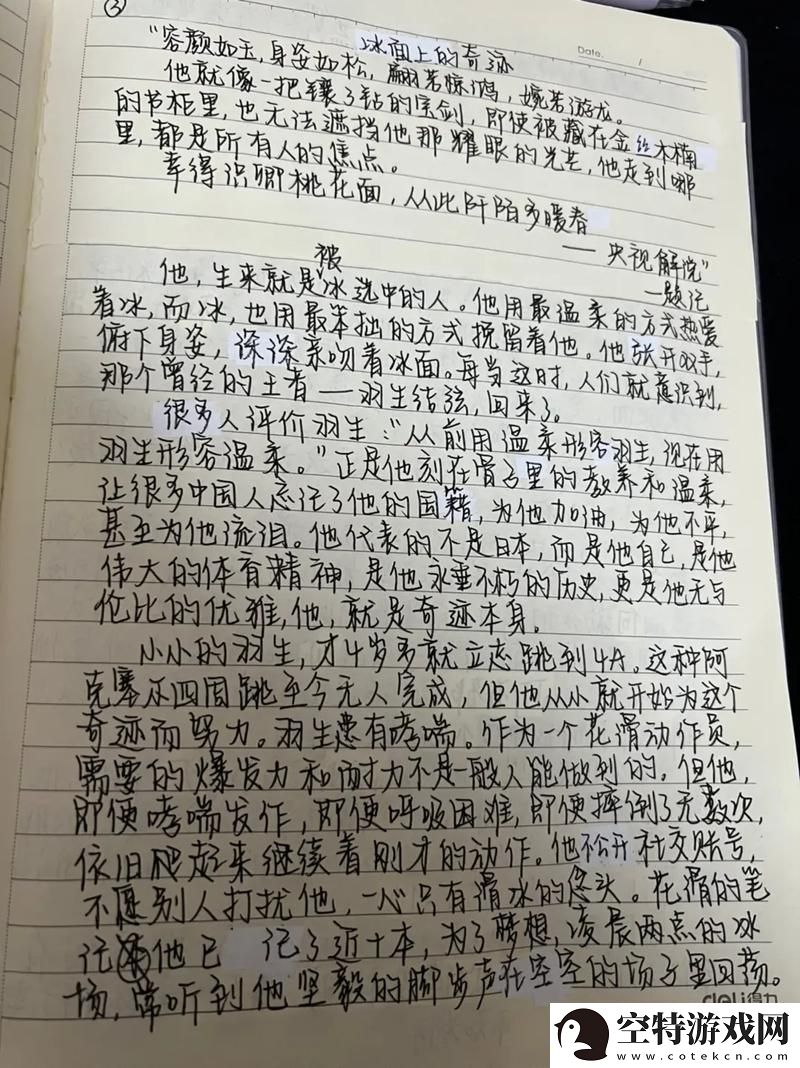 ③
冰面上的奇迹
Date. /
"容颜如玉,身姿如松,翩若惊鸿,婉若游龙。
他就像一把镶了钻的宝剑,即使被藏在金丝木楠
的书柜里,也无法遮挡他那耀眼的光芒,他走到哪
里,都是所有人的焦点。
幸得识卿桃花面,从此阡陌多暖春
——央视解说"
—题记
他,生来就是被冰选中的人。他用最温柔的方式热爱
着冰,而冰,也用最笨拙的方式挽留着他。他张开双手,
俯下身姿,深深亲吻着冰面。每当这时,人们就意识到,
那个曾经的王者——羽生结弦,回来了。
很多人评价羽生:"从前用温柔形容羽生,现在用
羽生形容温柔。"正是他刻在骨子里的教养和温柔,
让很多中国人忘记了他的国籍,为他加油,为他不平,
甚至为他流泪。他代表的不是日本,而是他自己,是他
伟大的体育精神,是他永垂不朽的历史,更是他无与
伦比的优雅,他,就是奇迹本身。
小小的羽生,才4岁多就立志跳到4A。这种阿
克塞尔四周跳至今无人完成,但他从小就开始为这个
奇迹而努力。羽生患有哮喘。作为一个花滑动作员,
需要的爆发力和耐力不是一般人能做到的。但他,
即便哮喘发作,即便呼吸困难,即便摔倒了无数次,
依旧爬起来继续着刚才的动作。他不公开社交账号,
不愿别人打扰他,一心只有滑冰的念头。花滑的笔
记他已 记了近十本,为了梦想,凌晨两点的冰
场,常听到他坚毅的脚步声在空空的场子里回荡。
deli得力
空特游戏网
www.cotekcn.com